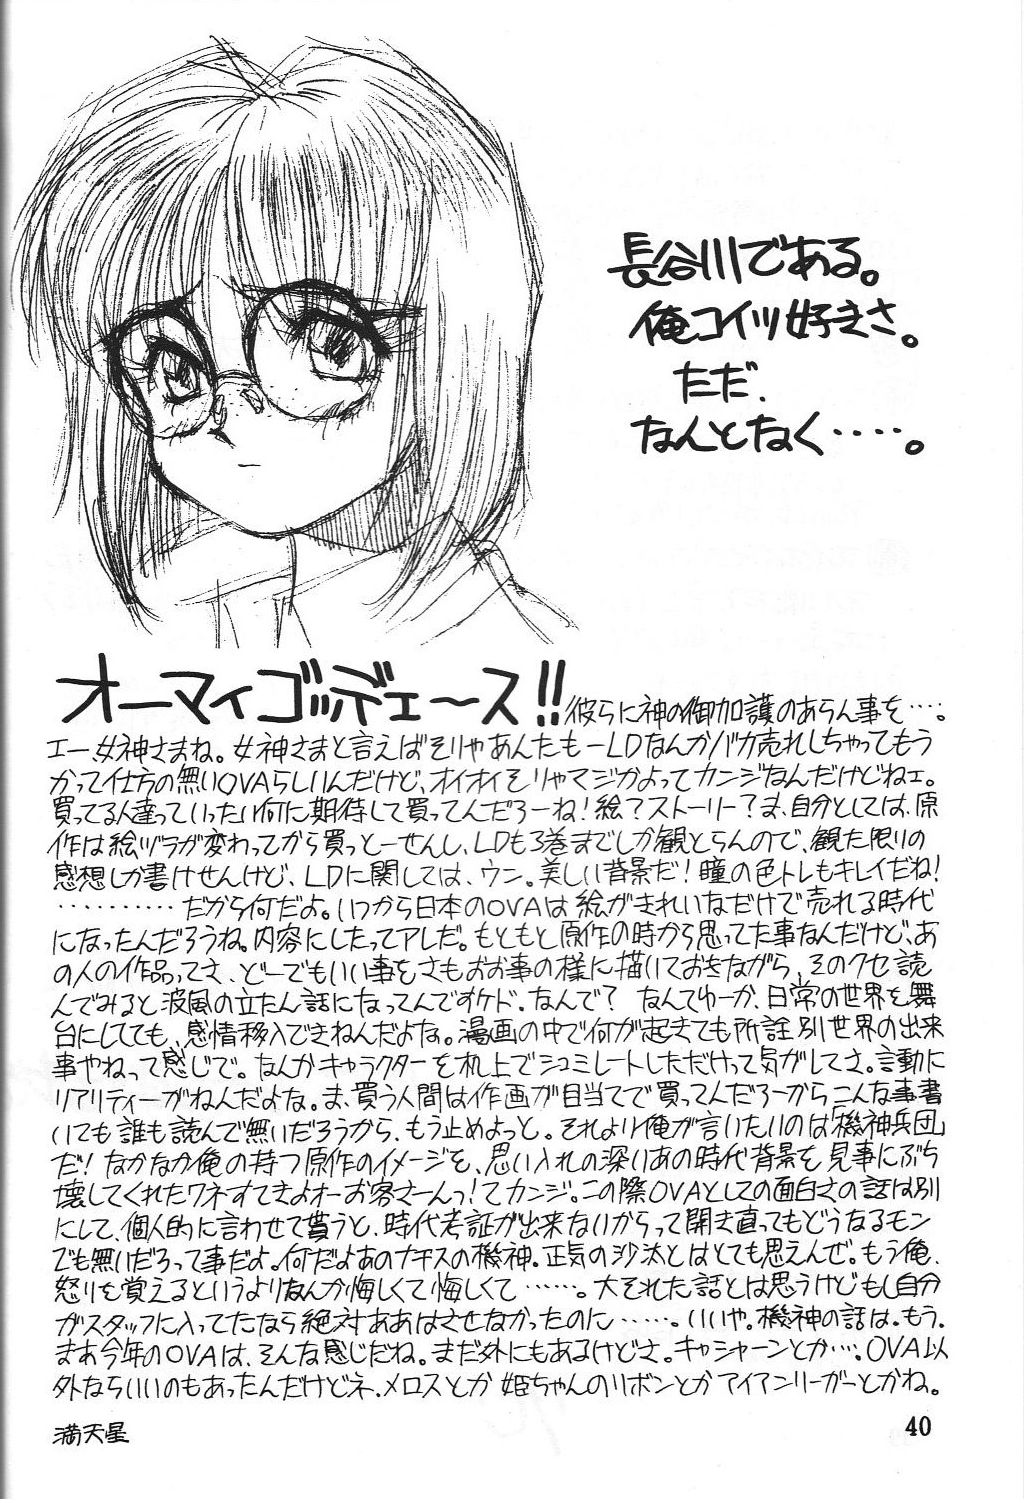 長谷川である。
俺コイツ好きさ。
ただ、
なんとなく‥‥。
オーマイゴッデェ～ス!! 彼らに神の御加護のあらん事を‥‥。
エー、女神さまね。女神さまと言えばそりゃあんたもーLDなんかバカ売れしちゃってもう
かって仕方の無いOVAらしいんだけど、オイオイそりゃマジかよってカンジなんだけどねェ。
買ってる人達っていったい何に期待して買ってんだろーね！絵？ストーリー？ま、自分としては、原
作は絵ヅラが変わってから買っとーせんし、LDも3巻までしか観とらんので、観た限りの
感想しか書けせんけど、LDに関しては、ウン。美しい背景だ！瞳の色トレもキレイだね！
‥‥‥‥‥だから何だよ。いつから日本のOVAは絵がきれいなだけで売れる時代
になったんだろうね。内容にしたってアレだ。もともと原作の時から思ってた事なんだけど、あ
の人の作品ってさ、どーでもいい事をさもおお事の様に描いておきながら、そのクセ読
んでみると波風の立たん話になってんですケド。なんで？ なんてゆーか、日常の世界を舞
台にしてても、感情移入できねんだよな。漫画の中で何が起きても所詮別世界の出来
事やねって感じで。なんかキャラクターを机上でシュミレートしただけって気がしてさ。言動に
リアリティーがねんだよな。ま、買う人間は作画が目当てで買ってんだろーからこんな事書
いても誰も読んで無いだろうから、もう止めよっと。それより俺が言いたいのは「機神兵団」
だ！なかなか俺の持つ原作のイメージを、思い入れの深いあの時代背景を見事にぶち
壊してくれたワネすてきよオーお客さーんっ！てカンジ。この際OVAとしての面白さの話は別
にして、個人的に言わせて貰うと、時代考証が出来ないからって開き直ってもどうなるモン
でも無いだろって事だよ。何だよあのナチスの機神。正気の沙汰とはとても思えんぜ。もう俺、
怒りを覚えるというよりなんか悔しくて悔しくて‥‥‥。大それた話とは思うけどもし自分
がスタッフに入ってたなら絶対ああはさせなかったのに‥‥‥。いいや。機神の話は。もう。
まあ今年のOVAは、そんな感じだね。まだ外にもあるけどさ。キャシャーンとか‥‥。OVA以
外ならいいのもあったんだけどネ、メロスとか姫ちゃんのリボンとかアイアンリーガーとかね。
満天星
40